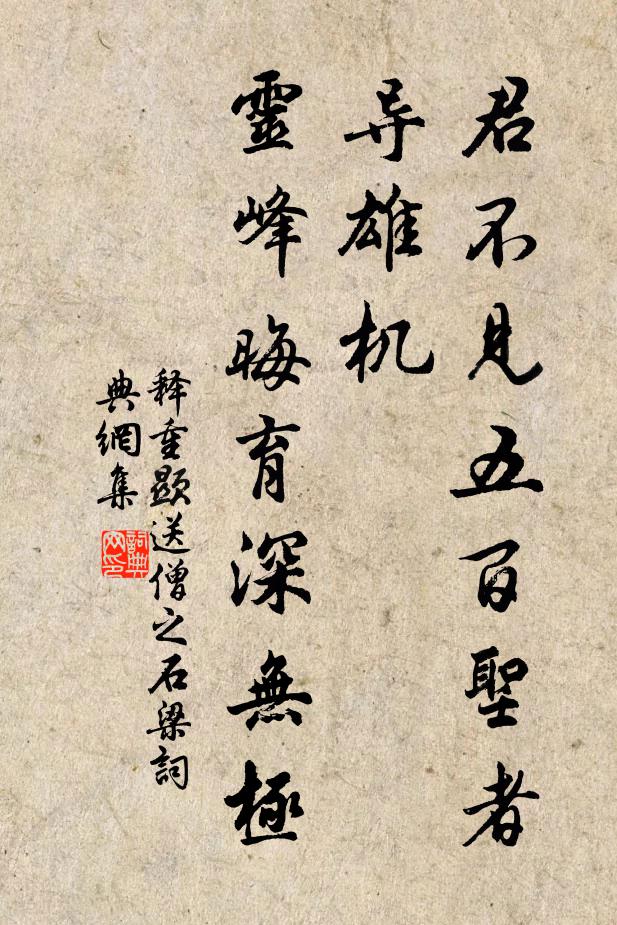 君不見五百聖者
导雄机
靈峰晦育深無極
释重顕送僧之石梁詞
典網集
詞典
网印